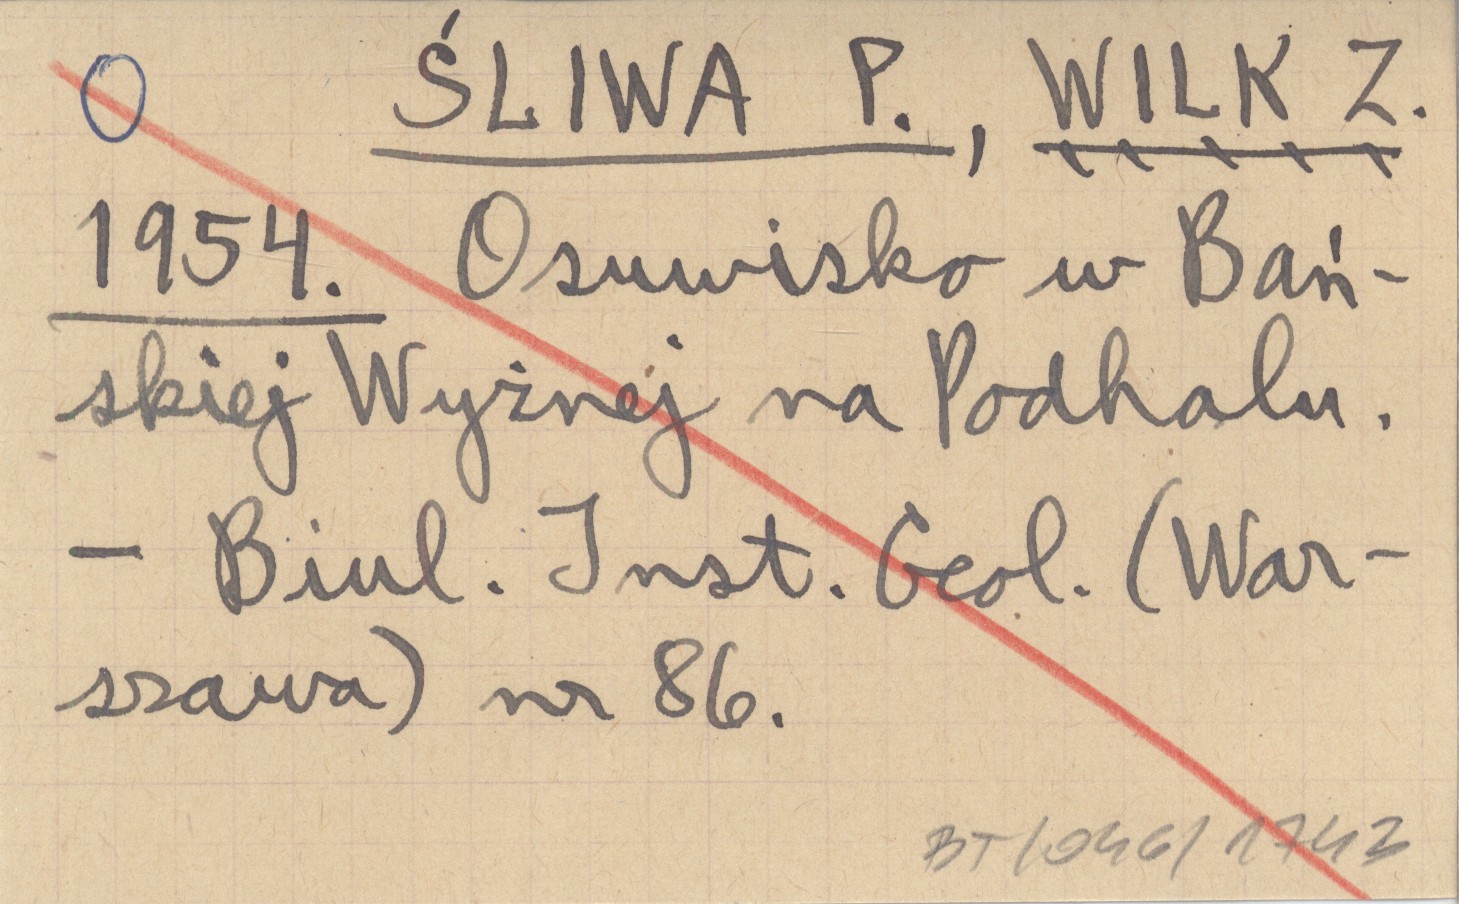 O ŚLIWA P., WILK Z.
1954. Osuwisko w Bań-
skiej Wyżnej na Podhalu.
- Biul. Inst. Geol. (War-
szawa) nr 86.
BT/046/1742